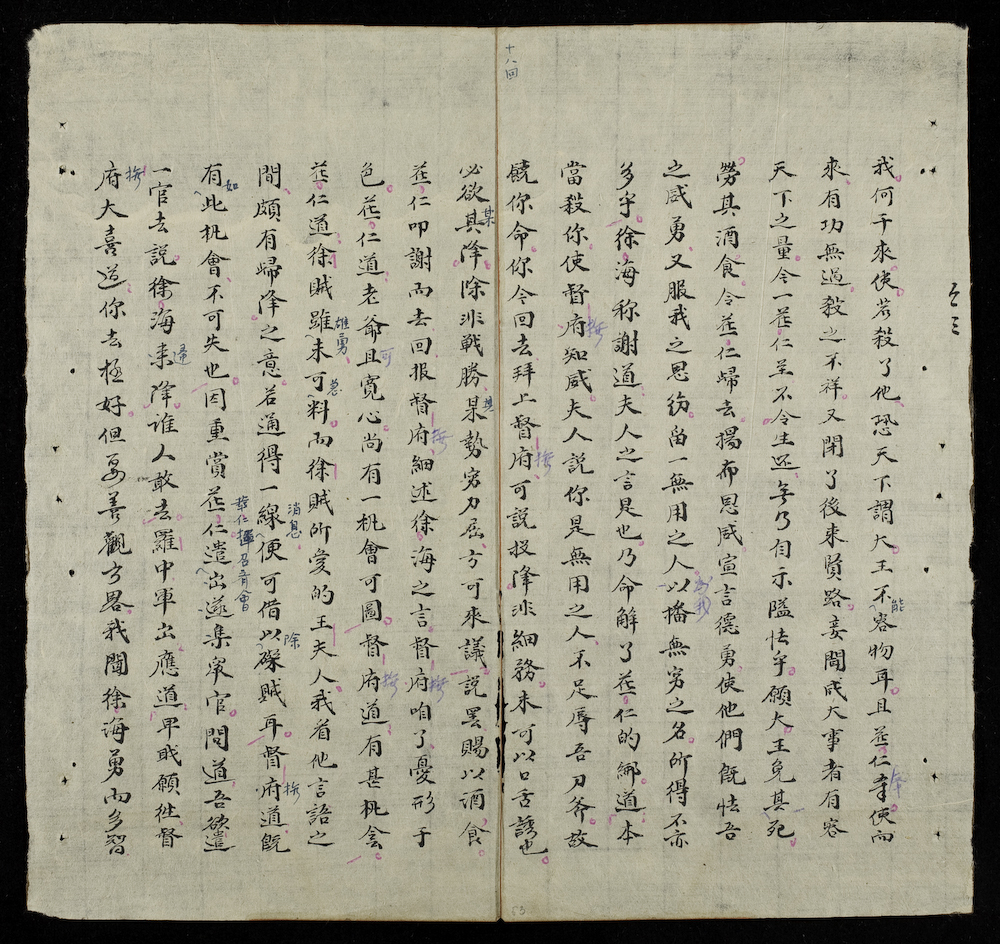 十八回
我何干來使若殺了他恐天下謂大王不能容物耳且華仁奉使而
來有功無過殺之不祥又閉了後來賢路妾聞成大事者有容
天下之量今一華仁至不令生还無乃自示隘怯乎願大王免其死
勞其酒食令華仁歸去揚布恩威宣言德勇使他們既怯吾
之威勇又服我之恩紛留一無用之人以播無穷之名所得不亦
多乎徐海称謝道夫人之言是也乃命解了華仁的綁道本
當殺你使督府知威夫人説你是無用之人不足辱吾刀斧故
饒你命你今回去拜上督府可説投降非細務未可以口舌誘也
必欲其降除非戰勝果勢穷力屈方可來議説罢賜以酒食
華仁叩謝而去回报督府細述徐海之言督府咱了憂形于
色華仁道老爺且寛心尚有一机會可圖督府道有甚机会
華仁道徐賊雖未可料而徐賊所愛的王夫人我看他言語之
間頗有歸降之意若通得一線便可借以磔賊耳督府道既
有此机會不可失也因重賞華仁遣出遂集眾官問道吾欲遣
一官去説徐海来降谁人敢去羅中軍出應道卑职願徃督
府大喜道你去極好但要善觀方畧我聞徐海勇而多智